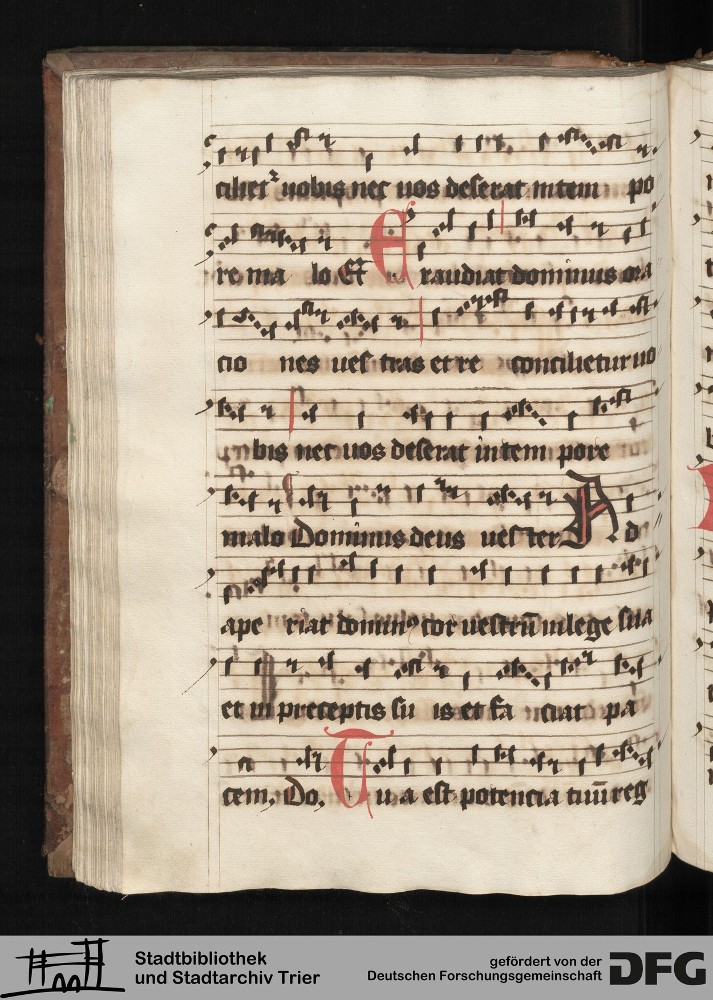 ciliet² uobis nec uos deserat intem po
re ma lo Et Exaudiat dominus ora
cio nes ues tras et re concilietur uo
bis nec uos deserat in tem pore
malo Dominus deus ues ter Ad
ape riat dominꝰ cor uestrū in lege sua
et in preceptis su is et fa ciat pa
cem, Do, Tu a est potencia tuū reg
Stadtbibliothek
und Stadtarchiv Trier
gefördert von der
Deutschen Forschungsgemeinschaft
DFG